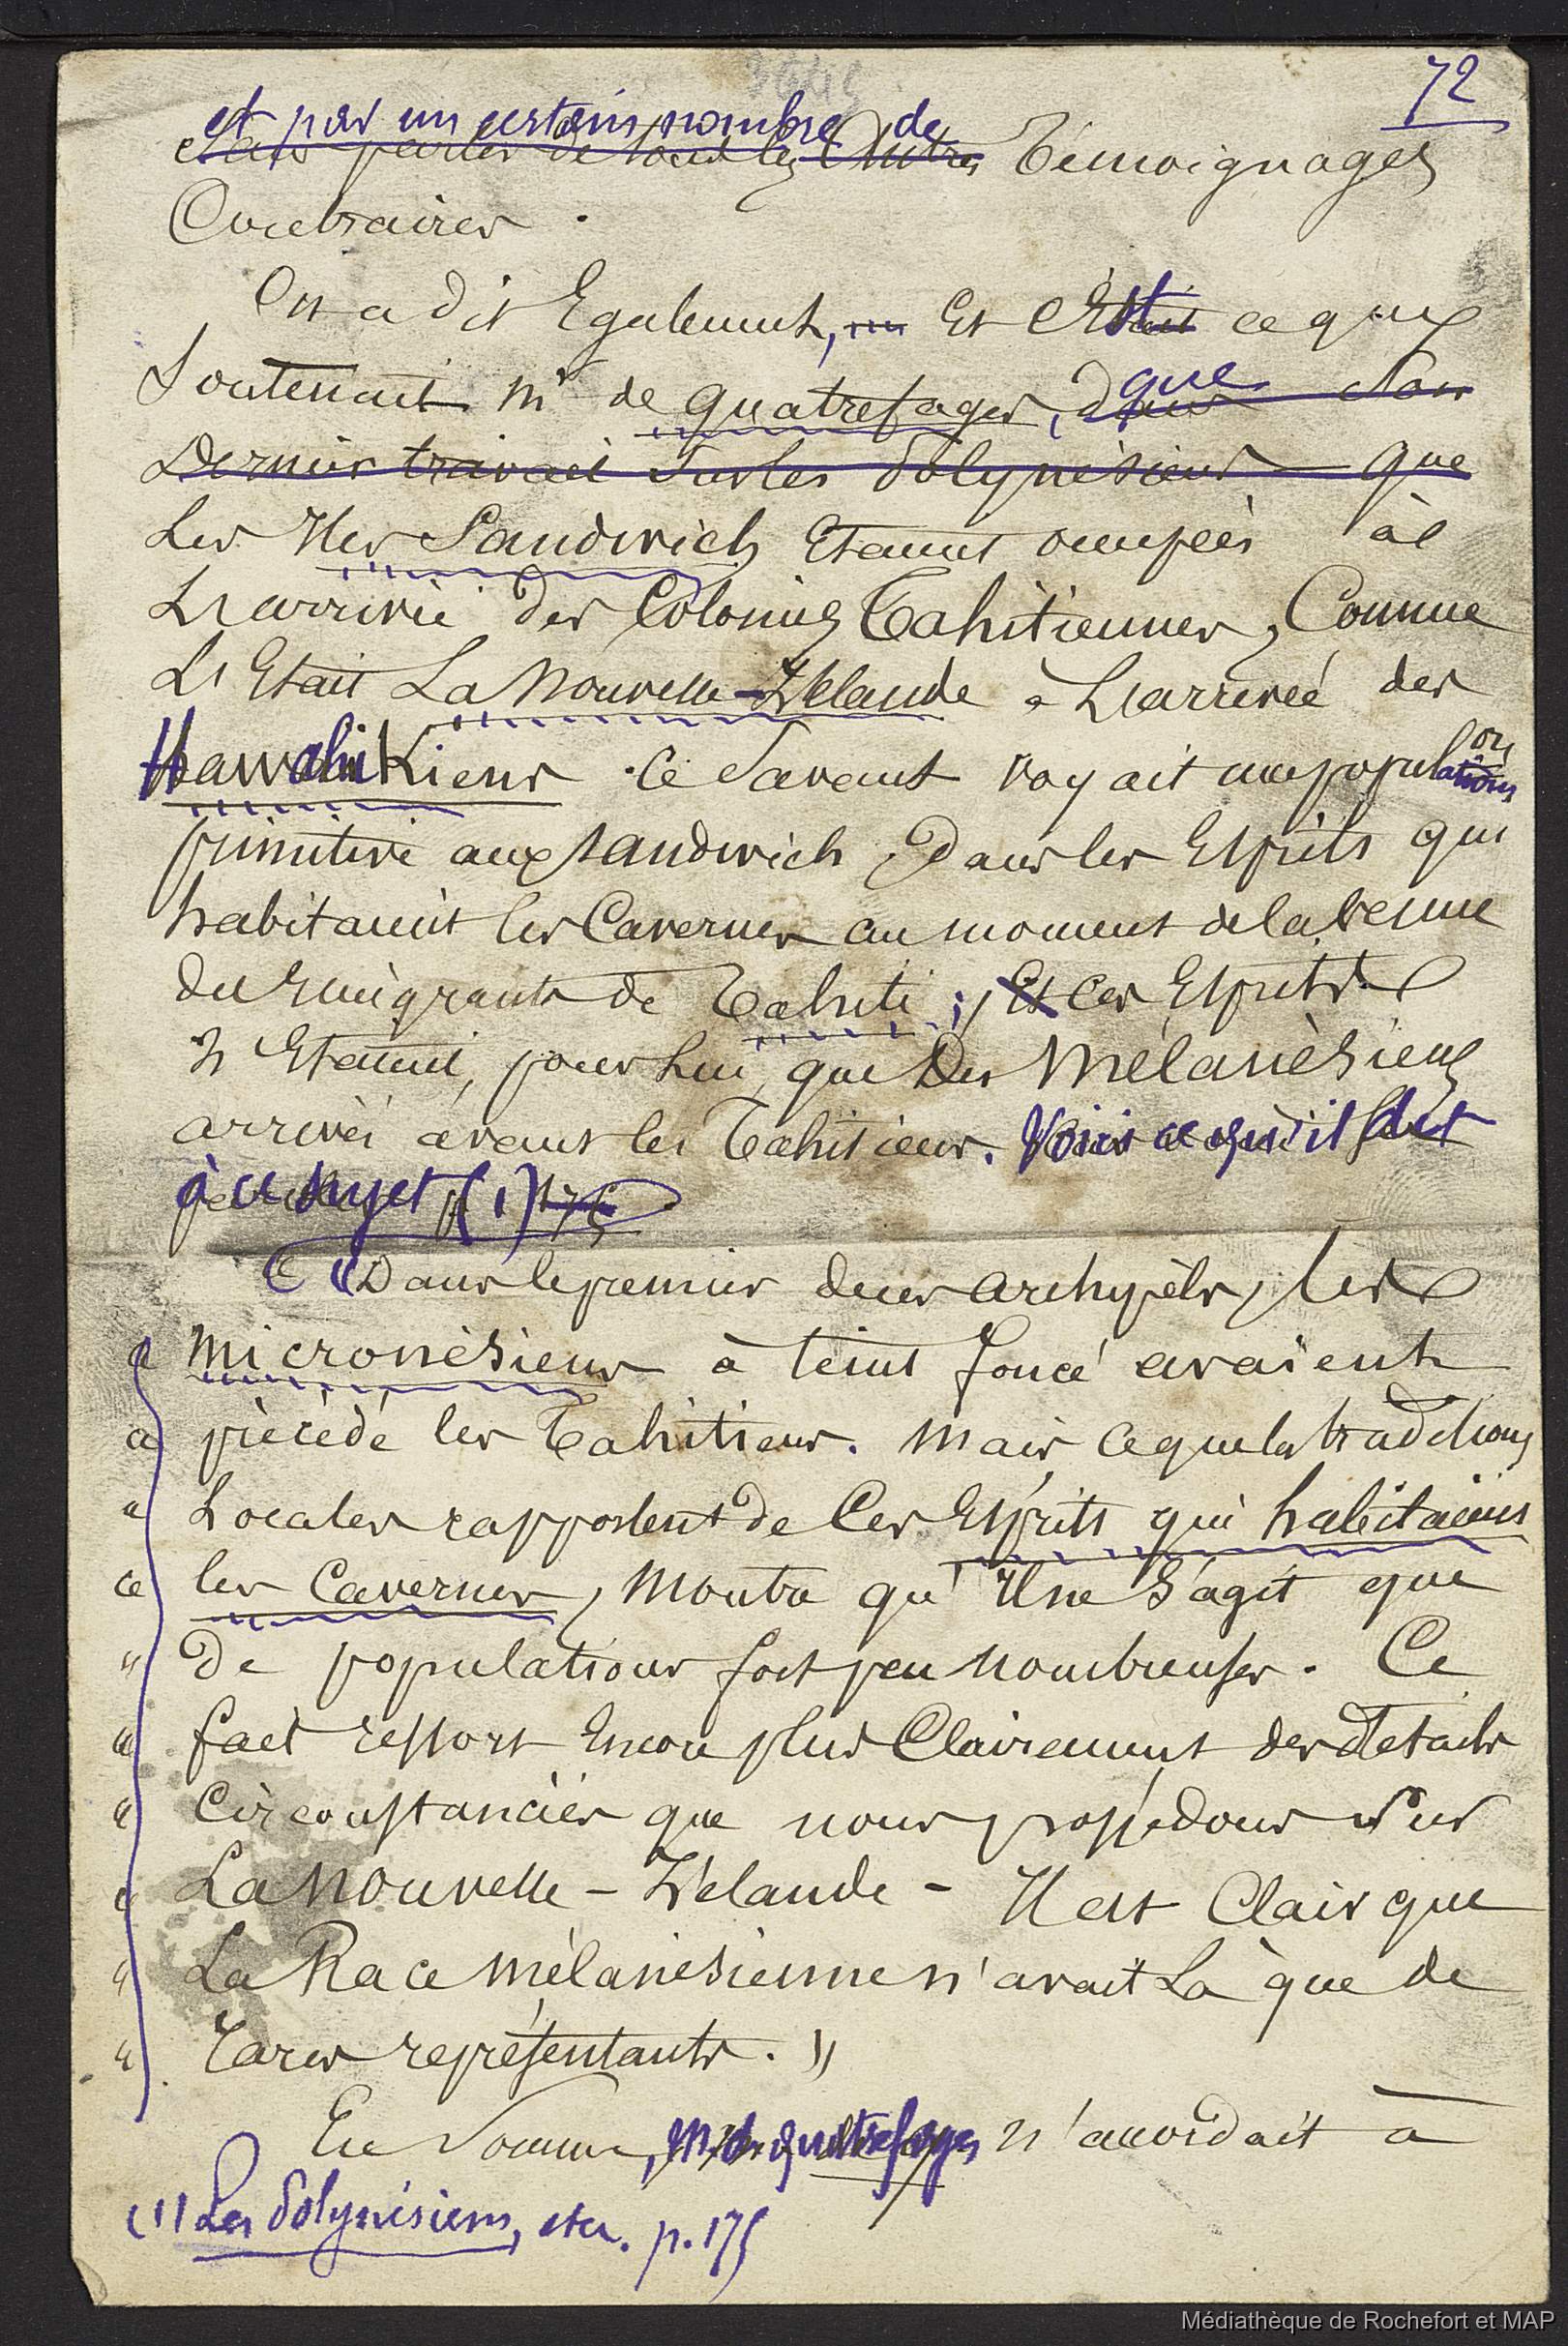 72
et par un certain nombre de
Sans parler de tous les Autres Témoignages
Contraires .
On a dit Egalement, Et C'Est ce que
Soutenait Mr de Quatrefages, que dans Son
Dernier travail Sur les Polynésiens — que
Les Iles Sandwich Etaient occupées à
L'arrivée des Colonies Tahitiennes, Comme
L'Etait La Nouvelle-Zélande à L'arrivée des
Hawahikiens. Ce Savant voyait une population
primitive aux Sandwich, Dans les Esprits qui
habitaient les Cavernes au moment de la venue
des Emigrants de Tahiti ; Et Ces Esprits
N'Etaient, pour Lui, que Des Mélanèsiens
arrivés avant les Tahitiens. Voici ce qu'il dit
à ce sujet (1) 175
« Dans le premier de ces archipels, les
" Micronèsiens à teint foncé avaient
" précédé les Tahitiens. Mais ce que les traditions
" Locales rapportent de Ces Esprits qui habitaient
" les Cavernes, Montre qu'Il ne S'agit que
" De populations fort peu nombreuses. Ce
" fait ressort Encore plus Clairement des Détails
" Circonstanciés que nous possédons Sur
" La Nouvelle-Zélande - Il est Clair que
" La Race Mélanésienne n'avait Là que de
" rares représentants. »
En Somme, M. de Quatrefages n'accordait à
(1) Les Polynésiens, etc. p. 175
Médiathèque de Rochefort et MAP